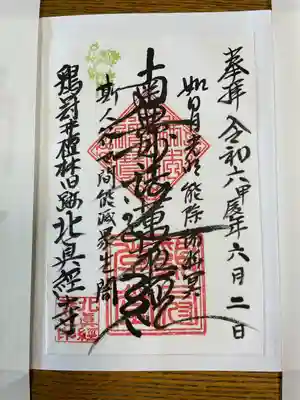 奉拝 令和六甲辰年六月二日
如日月光明能除諸幽冥
南無妙法蓮華経
斯人行世間能滅衆生闇
鶏冠井檀林旧跡北真経寺